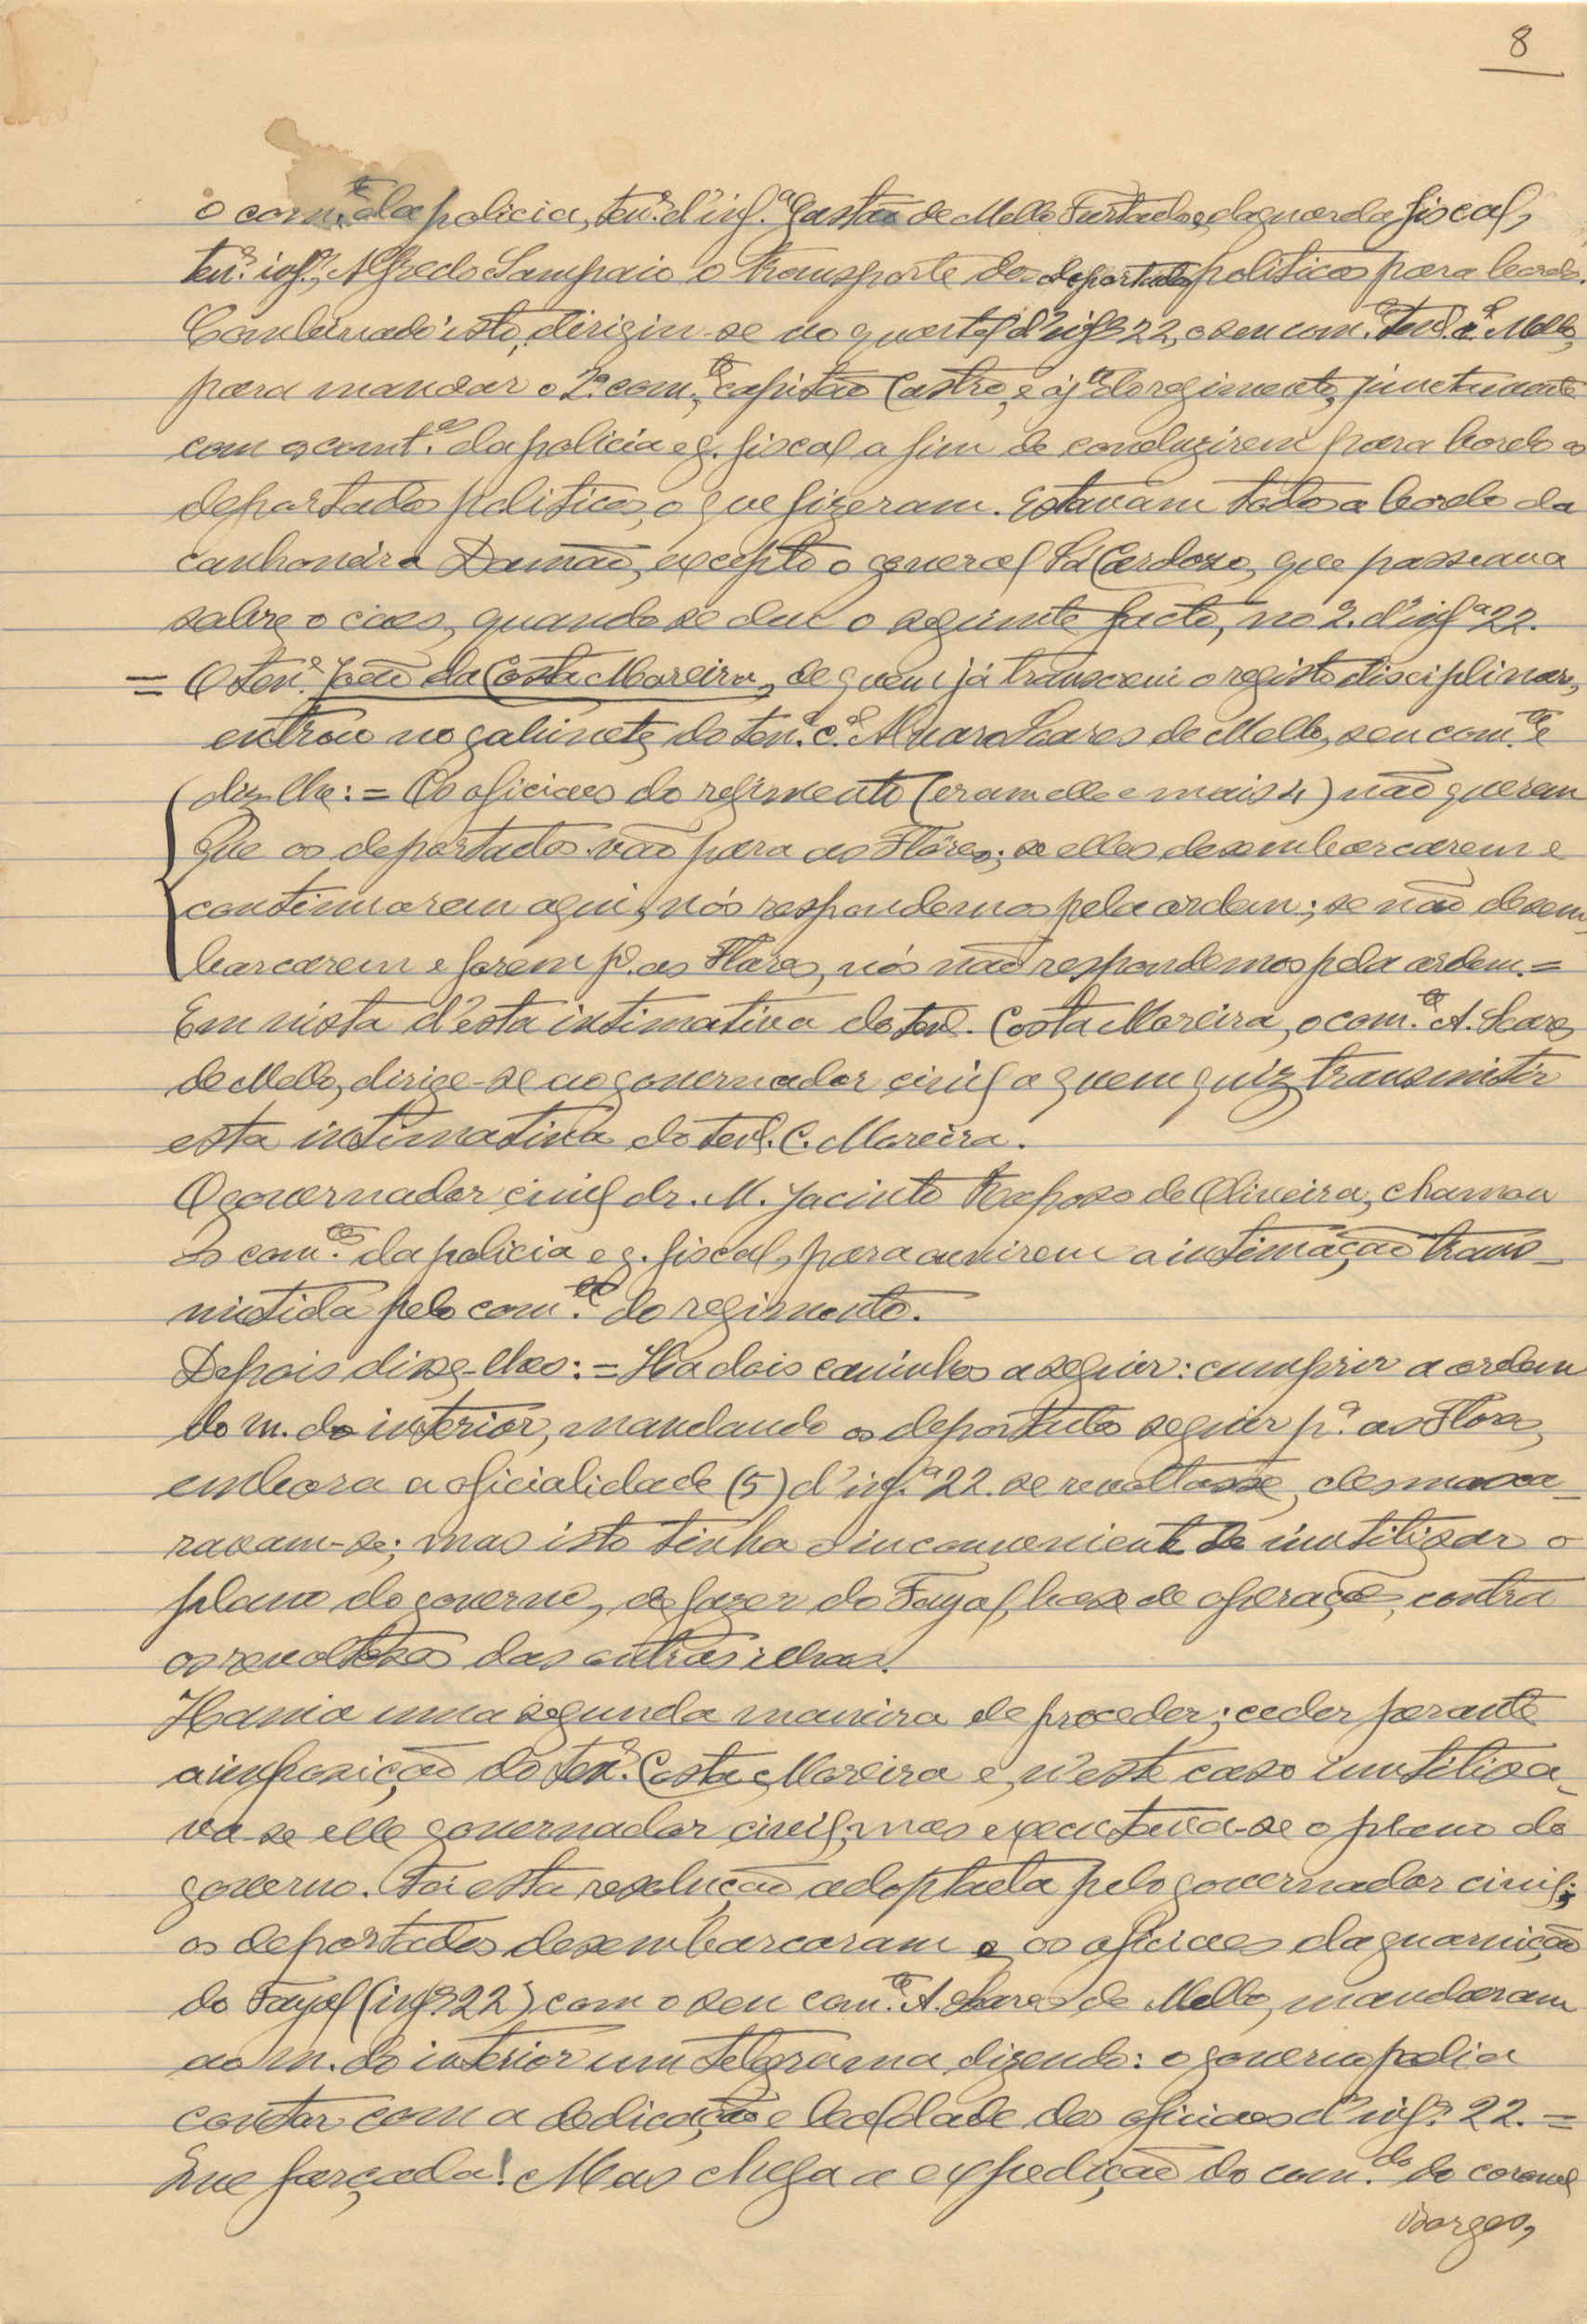 8
o com.te da policia, ten.e d'inf.a Gastão de Mello Furtado e da guarda fiscal,
ten.e inf.a, Alfredo Sampaio o transporte dos deportados politicos para bordo.
Combinado isto, dirigiu-se ao quartel d'inf.a 22, o seu com.te ten.e c.el Mello,
para mandar o 2.o com.te, capitão Castro, e aj.te do regimento, junctamente
com os comt.es da policia e g. fiscal a fim de conduzirem para bordo os
deportados politicos, o que fizeram. Estavam todos a bordo da
canhoneira Damão, excepto o general Sá Cardozo, que passeava
sobre o caes, quando se deu o seguinte facto, no 2. d'inf.a 22.
= O ten.e João da Costa Moreira, de quem já transcrevi o registo disciplinar,
entrou no gabinete do ten.e c.el Alvaro Soares de Mello, seu com.te e
diz-lhe: = Os oficiaes do regimento (eram elle e mais 4) não querem
que os deportados vão para as Flôres; se elles desembarcarem e
continuarem aqui, nós respondemos pela ordem; se não desem
barcarem e forem p.a as Flores, nós não respondemos pela ordem. =
Em vista d'esta intimativa do ten.e Costa Moreira, o com.te A. Soares
de Mello, dirige-se ao governador civil a quem quiz transmitir
esta intimativa do ten.e C. Moreira.
O governador civil dr. M. Jacinto Raposo de Oliveira, chamou
os com.tes da policia e g. fiscal, para ouvirem a intimação trans-
mitida pelo com.te do regimento.
Depois disse-lhes: = Ha dois caminhos a seguir: cumprir a ordem
do m. do interior, mandando os deportados seguir p.a as Flores,
embora a oficialidade (5) d'inf.a 22. se revoltasse, desmasca-
ravam-se; mas isto tinha o inconveniente de inutilizar o
plano do governo, de fazer do Fayal, base de operações, contra
os revoltosos das outras ilhas.
Havia uma segunda maneira de proceder; ceder perante
a imposição do ten.e Costa Moreira e, n'este caso inutilisa-
va-se elle governador civil, mas executava-se o plano do
governo. Foi esta resolução adoptada pelo governador civil;
os deportados desembarcaram e os oficiaes da guarnição
do Fayal (inf.a 22) com o seu com.te A. Soares de Mello, mandaram
ao m. do interior um telegrama dizendo: o governo podia
contar com a dedicação e lealdade dos oficiaes d'inf.a 22. =
Que farçada! Mas chega a expedição do com.do do coronel
Borges,